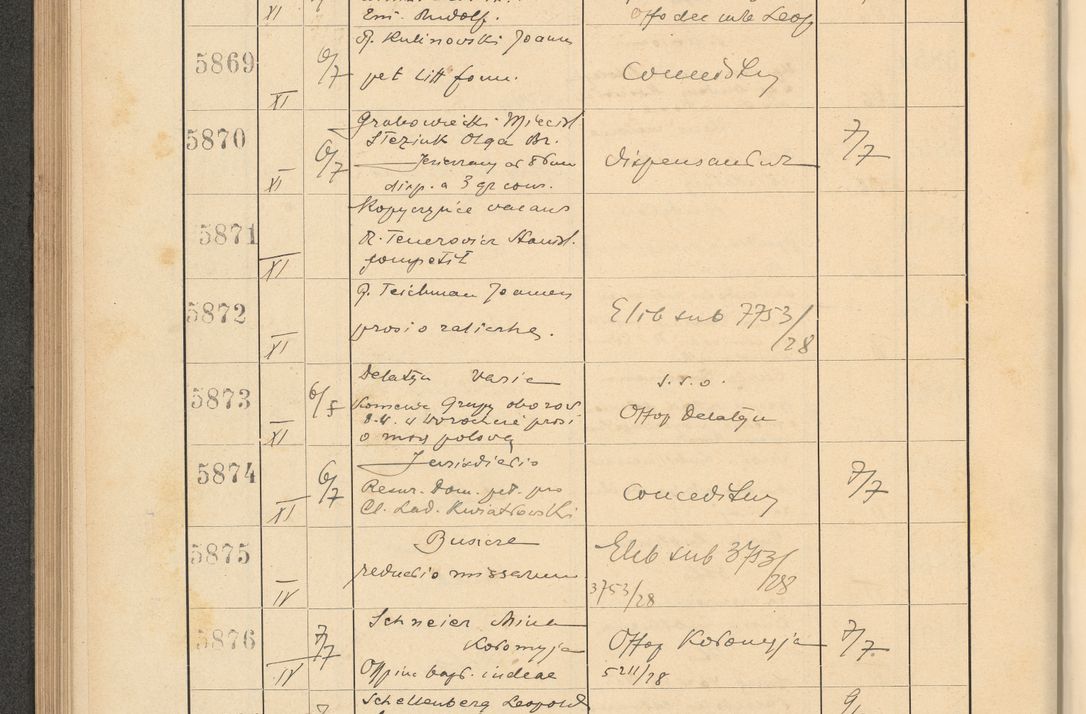 XI
Em. Rudolf.
5869
6/7
XI
R. Kulinowski Joannes
pet litt form.
conceditur
5870
6/7
XI
Grabowiecki Miecisl
Olga Br.
Jezierzany
disp. a 3 gr cons.
dispensantur
7/7
5871
XI
Kopyczyńce vacans
R. Tenerowicz Stanisl.
competit
5872
XI
R. Teichman Joannes
prosi o zaliczkę.
Elib sub 7753/28
5873
6/7
XI
Delatyn varia
Komenda Grupy obozow
W. w Worochcie prosi
o mszę polową
s. s. o.
Offop Delatyn
5874
6/7
XI
Jurisdictio
Resur. Dom. pet. pro
Cl. Lad. Kwiatkowski
conceditur
7/7
5875
IV
Busacze
reductio missarum
Elib sub 3753/28
3753/28
5876
7/7
IV
Schneier Mina
Kołomyja
Offic bapt. indeae
Offop Kołomyja
5211/28
7/7
Schellenberg Leopold